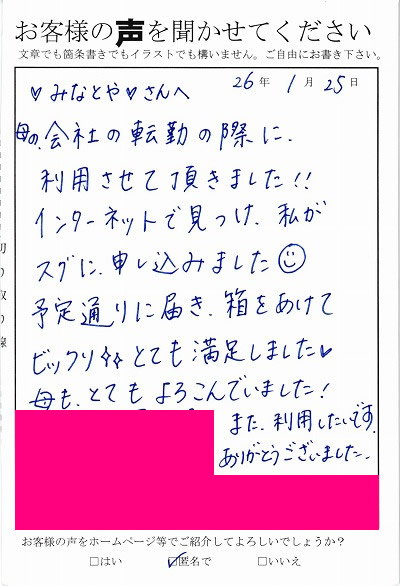 お客様の声を聞かせてください
文章でも箇条書きでもイラストでも構いません。ご自由にお書き下さい。
26年 1月 25日
♡みなとや♡さんへ
母の、会社の転勤の際に、
利用させて頂きました!!
インターネットで見つけ、私が
スグに、申し込みました☺
予定通りに届き、箱をあけて
ビックリ✧✧とても満足しました♥
母も、とてもよろこんでいました!
また、利用したいです。
ありがとうございました。
切り取り線
お客様の声をホームページ等でご紹介してよろしいでしょうか?
□はい ☑匿名で □いいえ